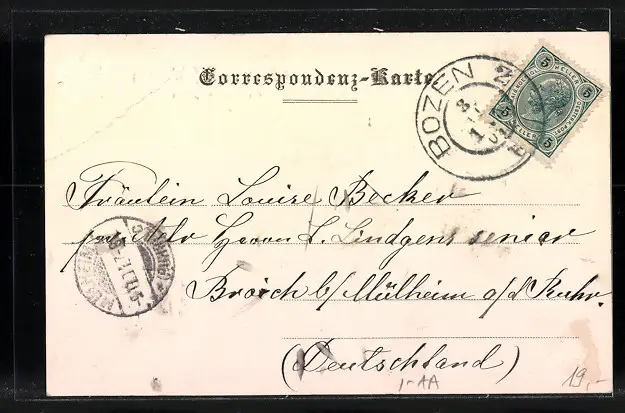 Correspondenz-Karte
BOZEN 2
5 5 5 5
HELLER
Fräulein Louise Becker
per Adr Herrn L. Lindgens senior
Broich b/Mülheim a/d Ruhr.
(Deutschland)
1-AA
19,-